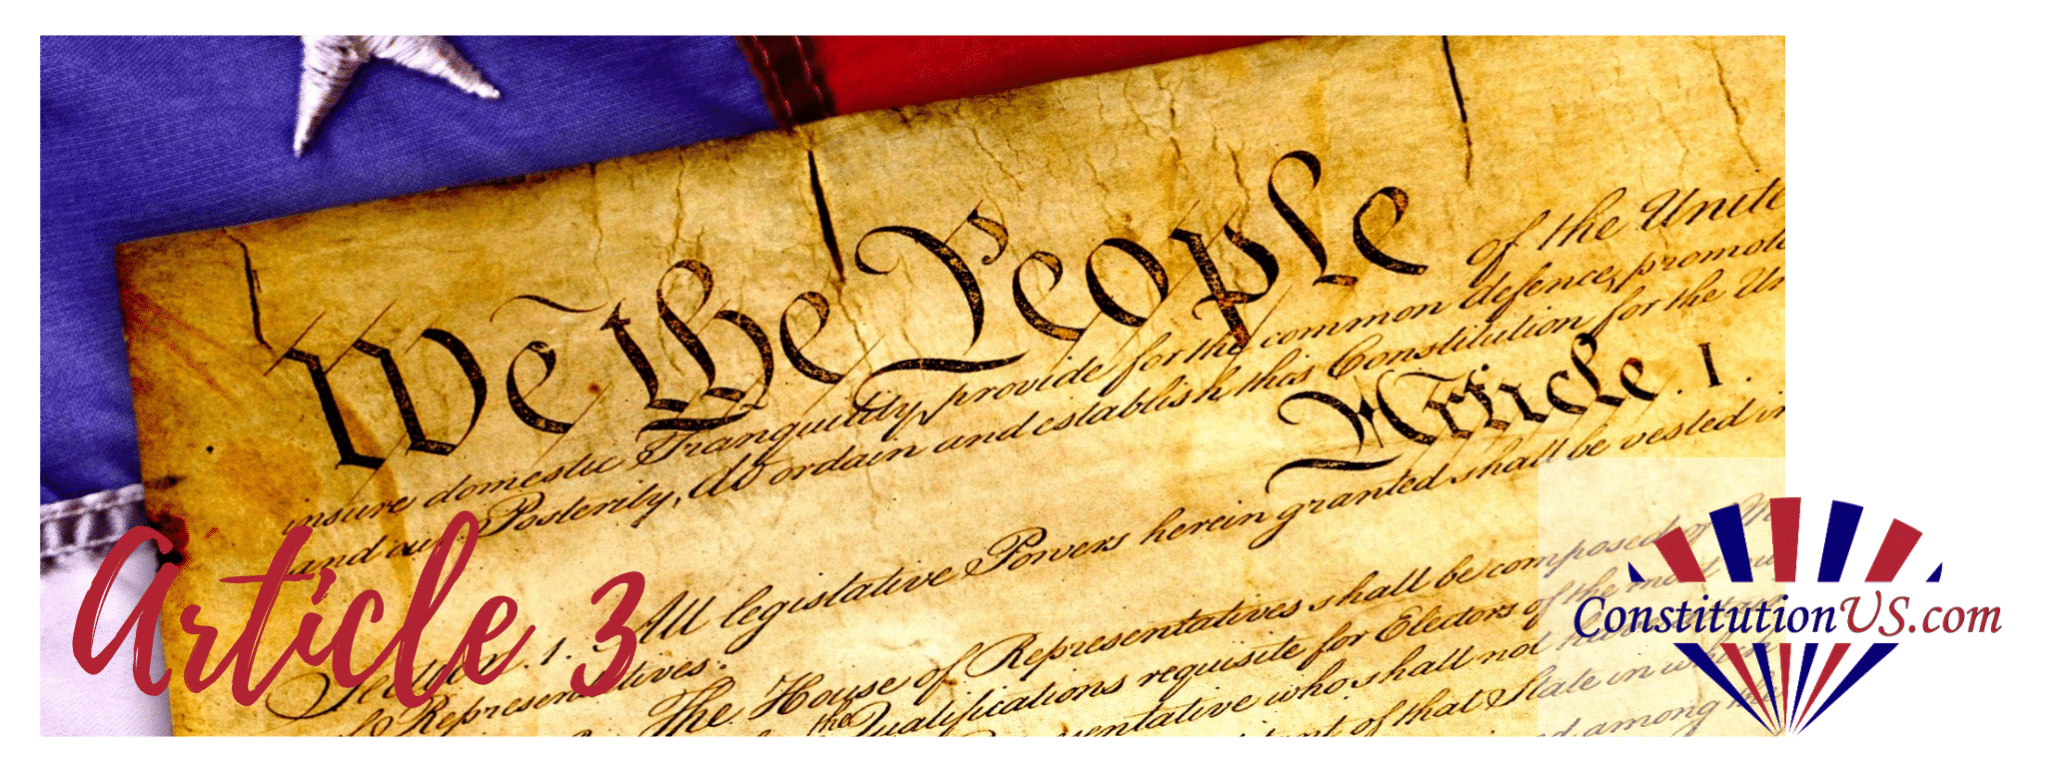 We the People
of the Unite
insure domestic Tranquility, provide for the common defence, promote
and our Posterity, do ordain and establish this Constitution for the Un
Article. I.
All legislative Powers herein granted shall be vested in
Representatives.
The House of Representatives shall be composed of
the
Qualifications requisite for Electors of the most
who shall not
of that State in
among the
Article 3
ConstitutionUS.com